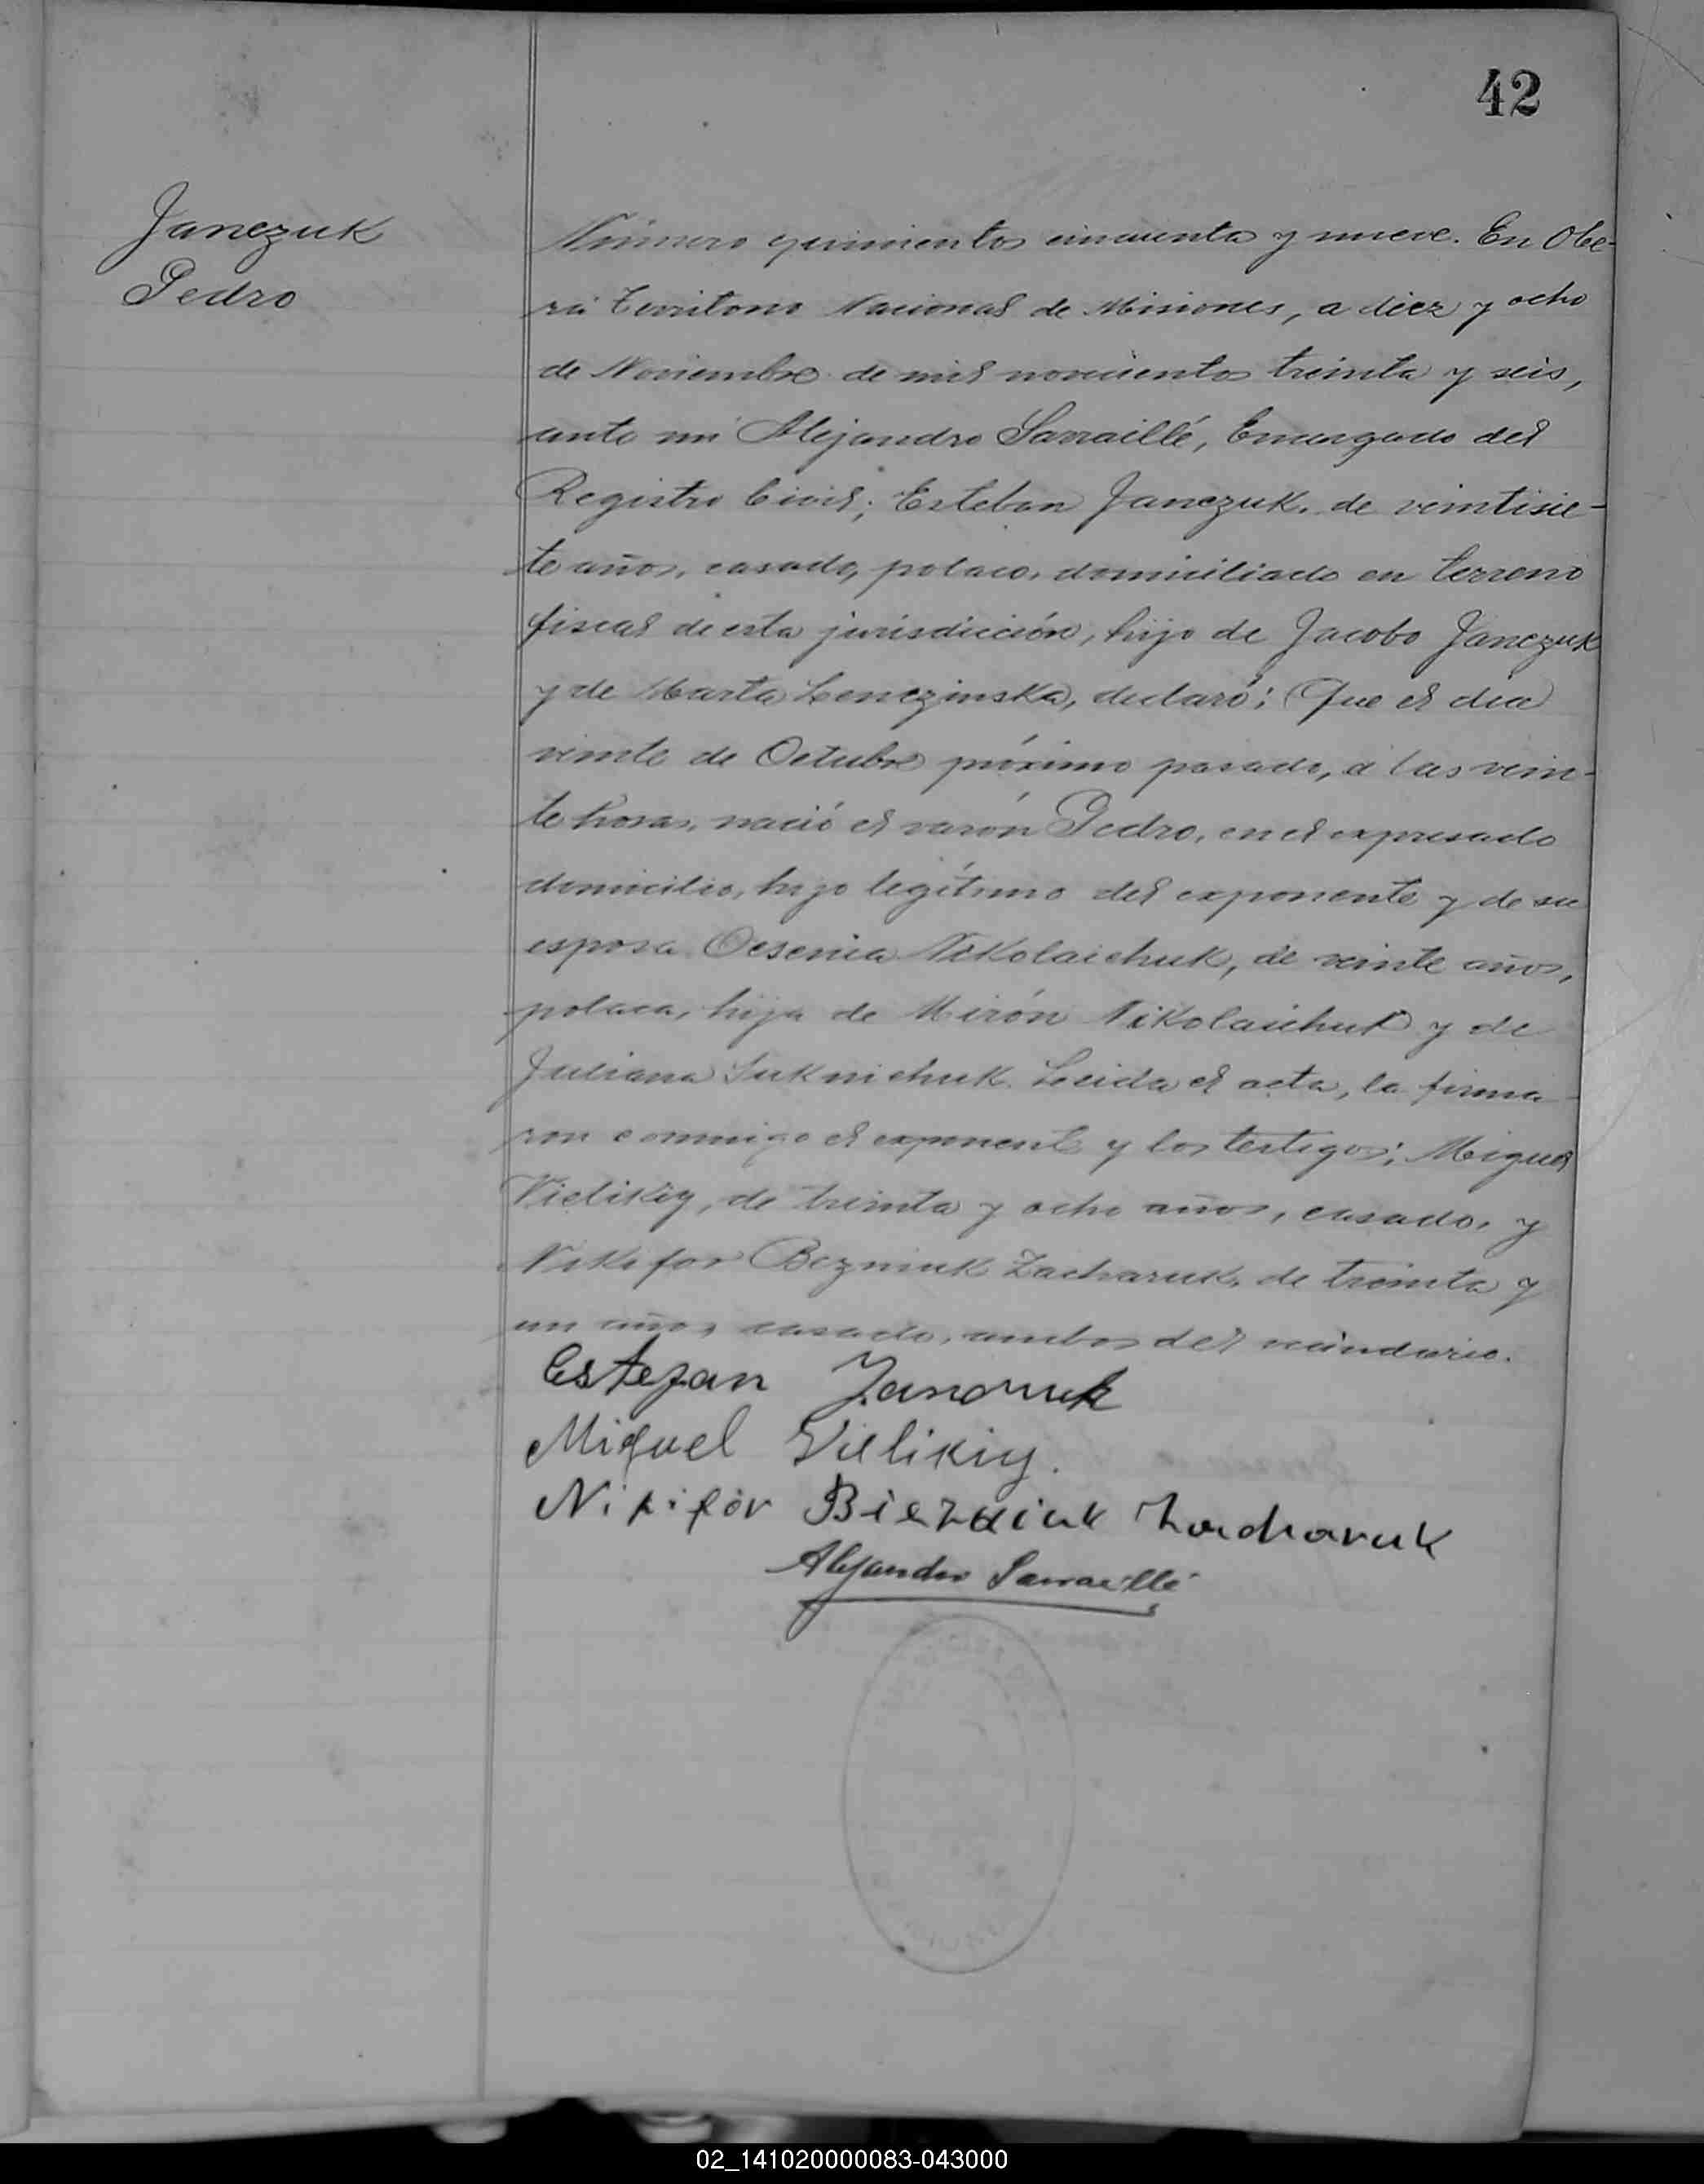 42
Janczuk
Pedro
Número quinientos cincuenta y nueve. En Obe-
rá Territorio Nacional de Misiones, a diez y ocho
de Noviembre de mil novecientos treinta y seis,
ante mí Alejandro Sarraillé, Encargado del
Registro Civil; Esteban Janczuk, de veintisie-
te años, casado, polaco, domiciliado en terreno
fiscal de esta jurisdicción, hijo de Jacobo Janczuk
y de Marta Lenczinska, declaró: Que el día
veinte de Octubre próximo pasado, a las vein-
te horas, nació el varón Pedro, en el expresado
domicilio, hijo legítimo del exponente y de su
esposa Ocsenia Nikolaichuk, de veinte años,
polaca, hija de Mirón Nikolaichuk y de
Juliana Suknichuk. Leida el acta, la firma-
ron conmigo el exponente y los testigos; Miguel
Vielikiy, de treinta y ocho años, casado, y
Nikifor Bezniuk Zacharuk, de treinta y
un años, casado, ambos del vecindario.
Estefan Janczuk
Miguel Vielikiy.
Nikifor Bierniuk Zacharuk
Alejandro Sarraillé
02_141020000083-043000